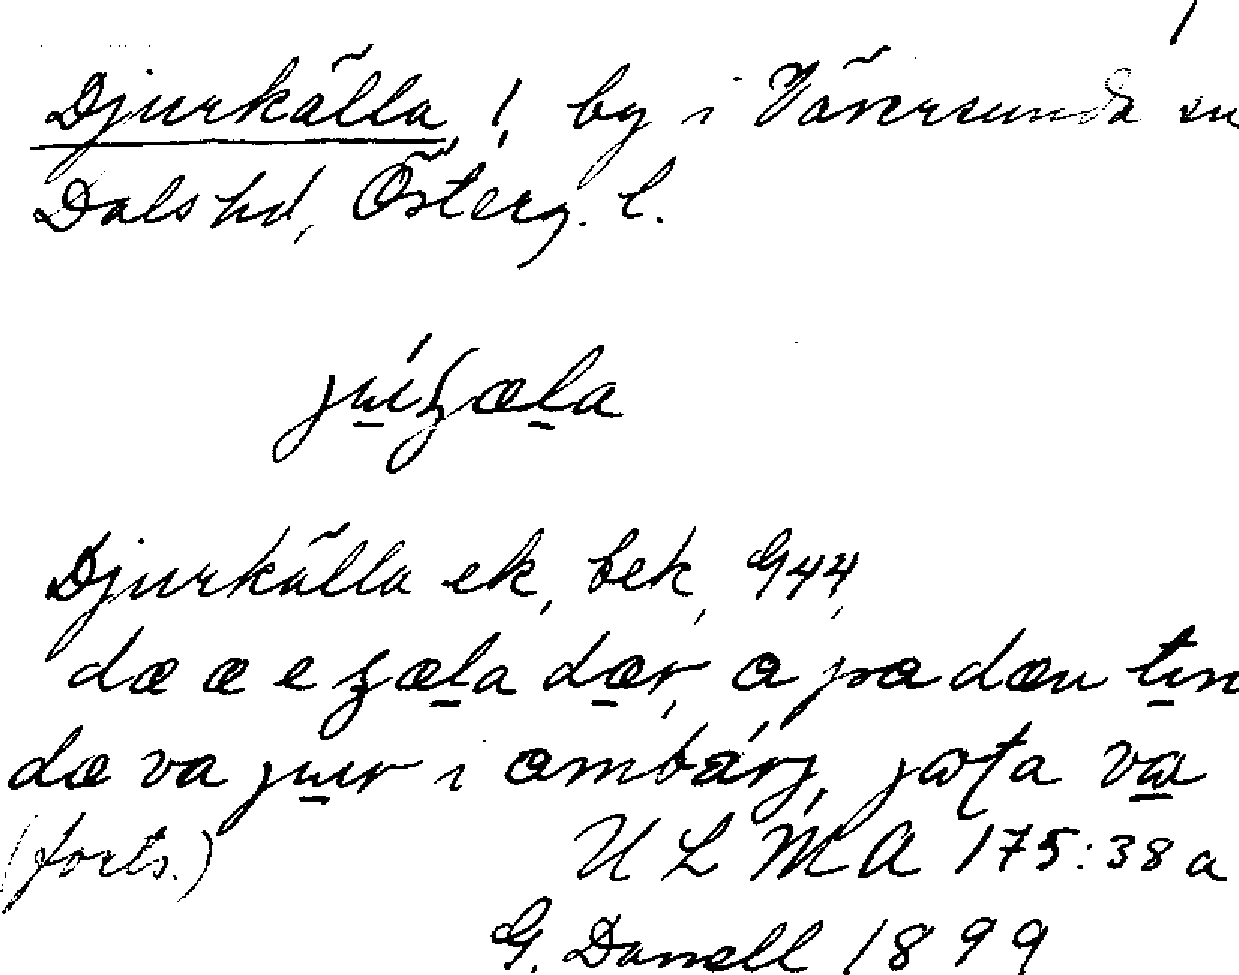 1
Djurkälla, !, by i Väversunda sn
Dals hd, Österg. l.
juɹ́ʒæla
Djurkälla ek, bek, G44,
dæ æ e ʒæla dær, a pa dæn tin
dæ va jur i ombärj, jæta va
(forts.) ULMA 175:38a
G. Danell 1899